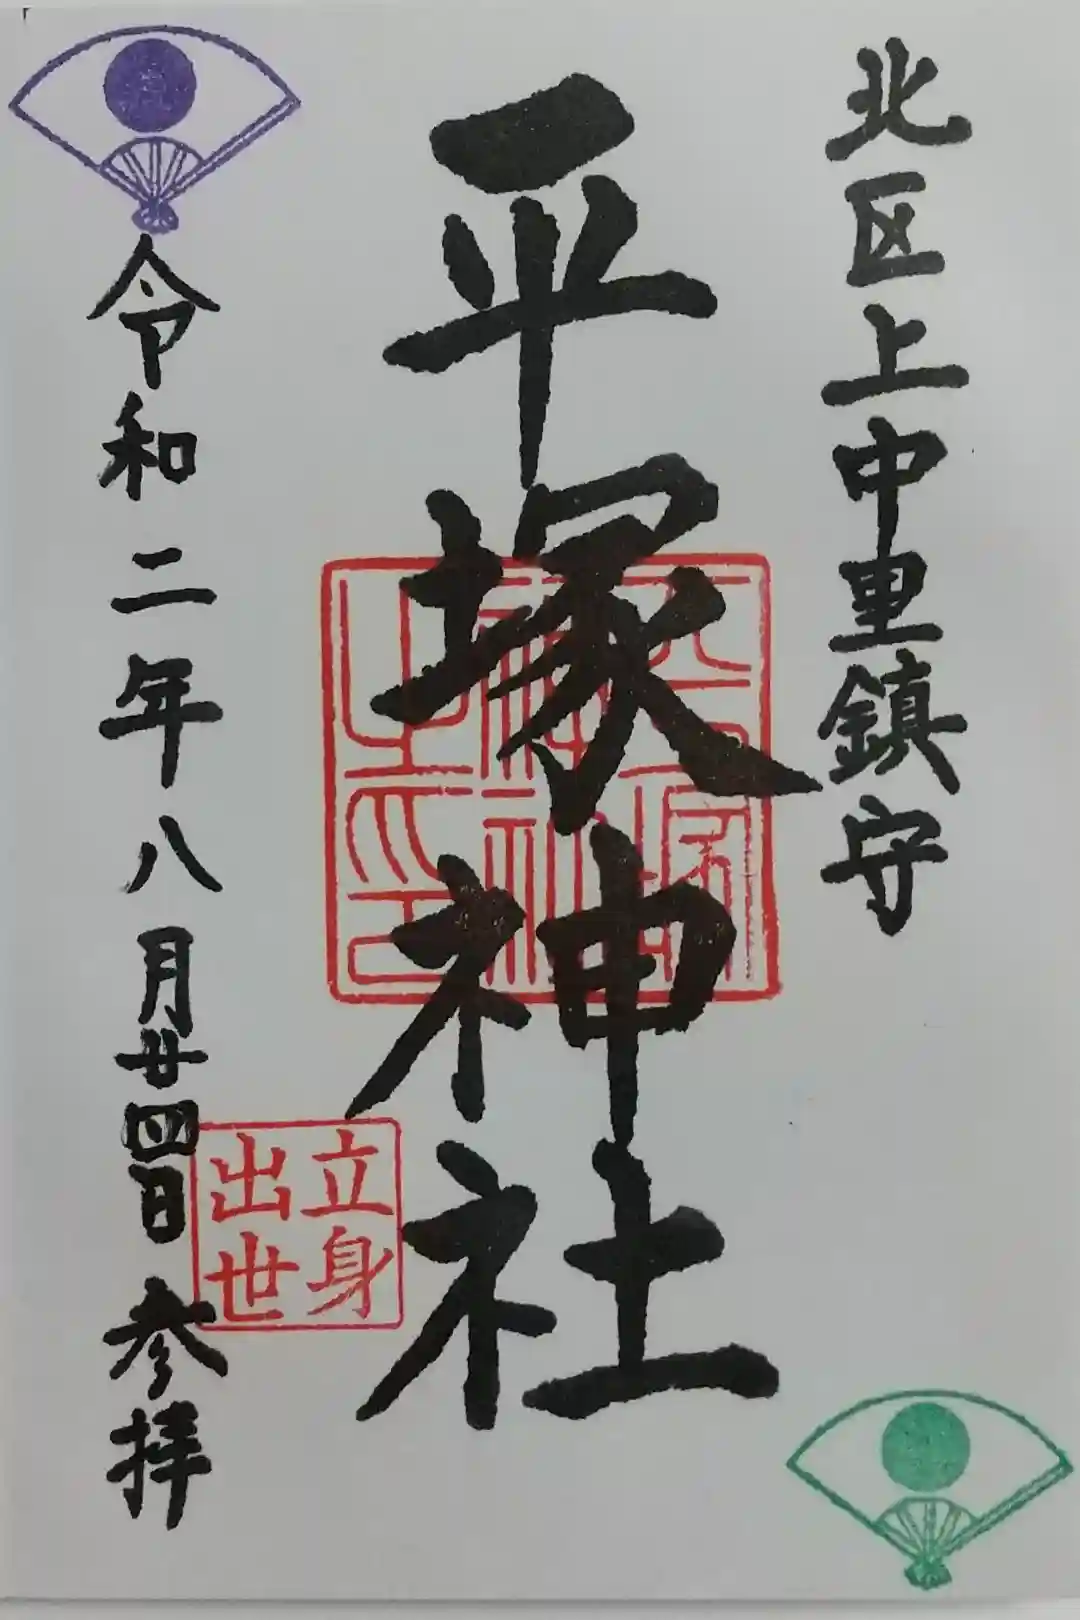 北区上中里鎮守
平塚神社
平塚神社之印
立身出世
令和二年八月廿四日 参拝